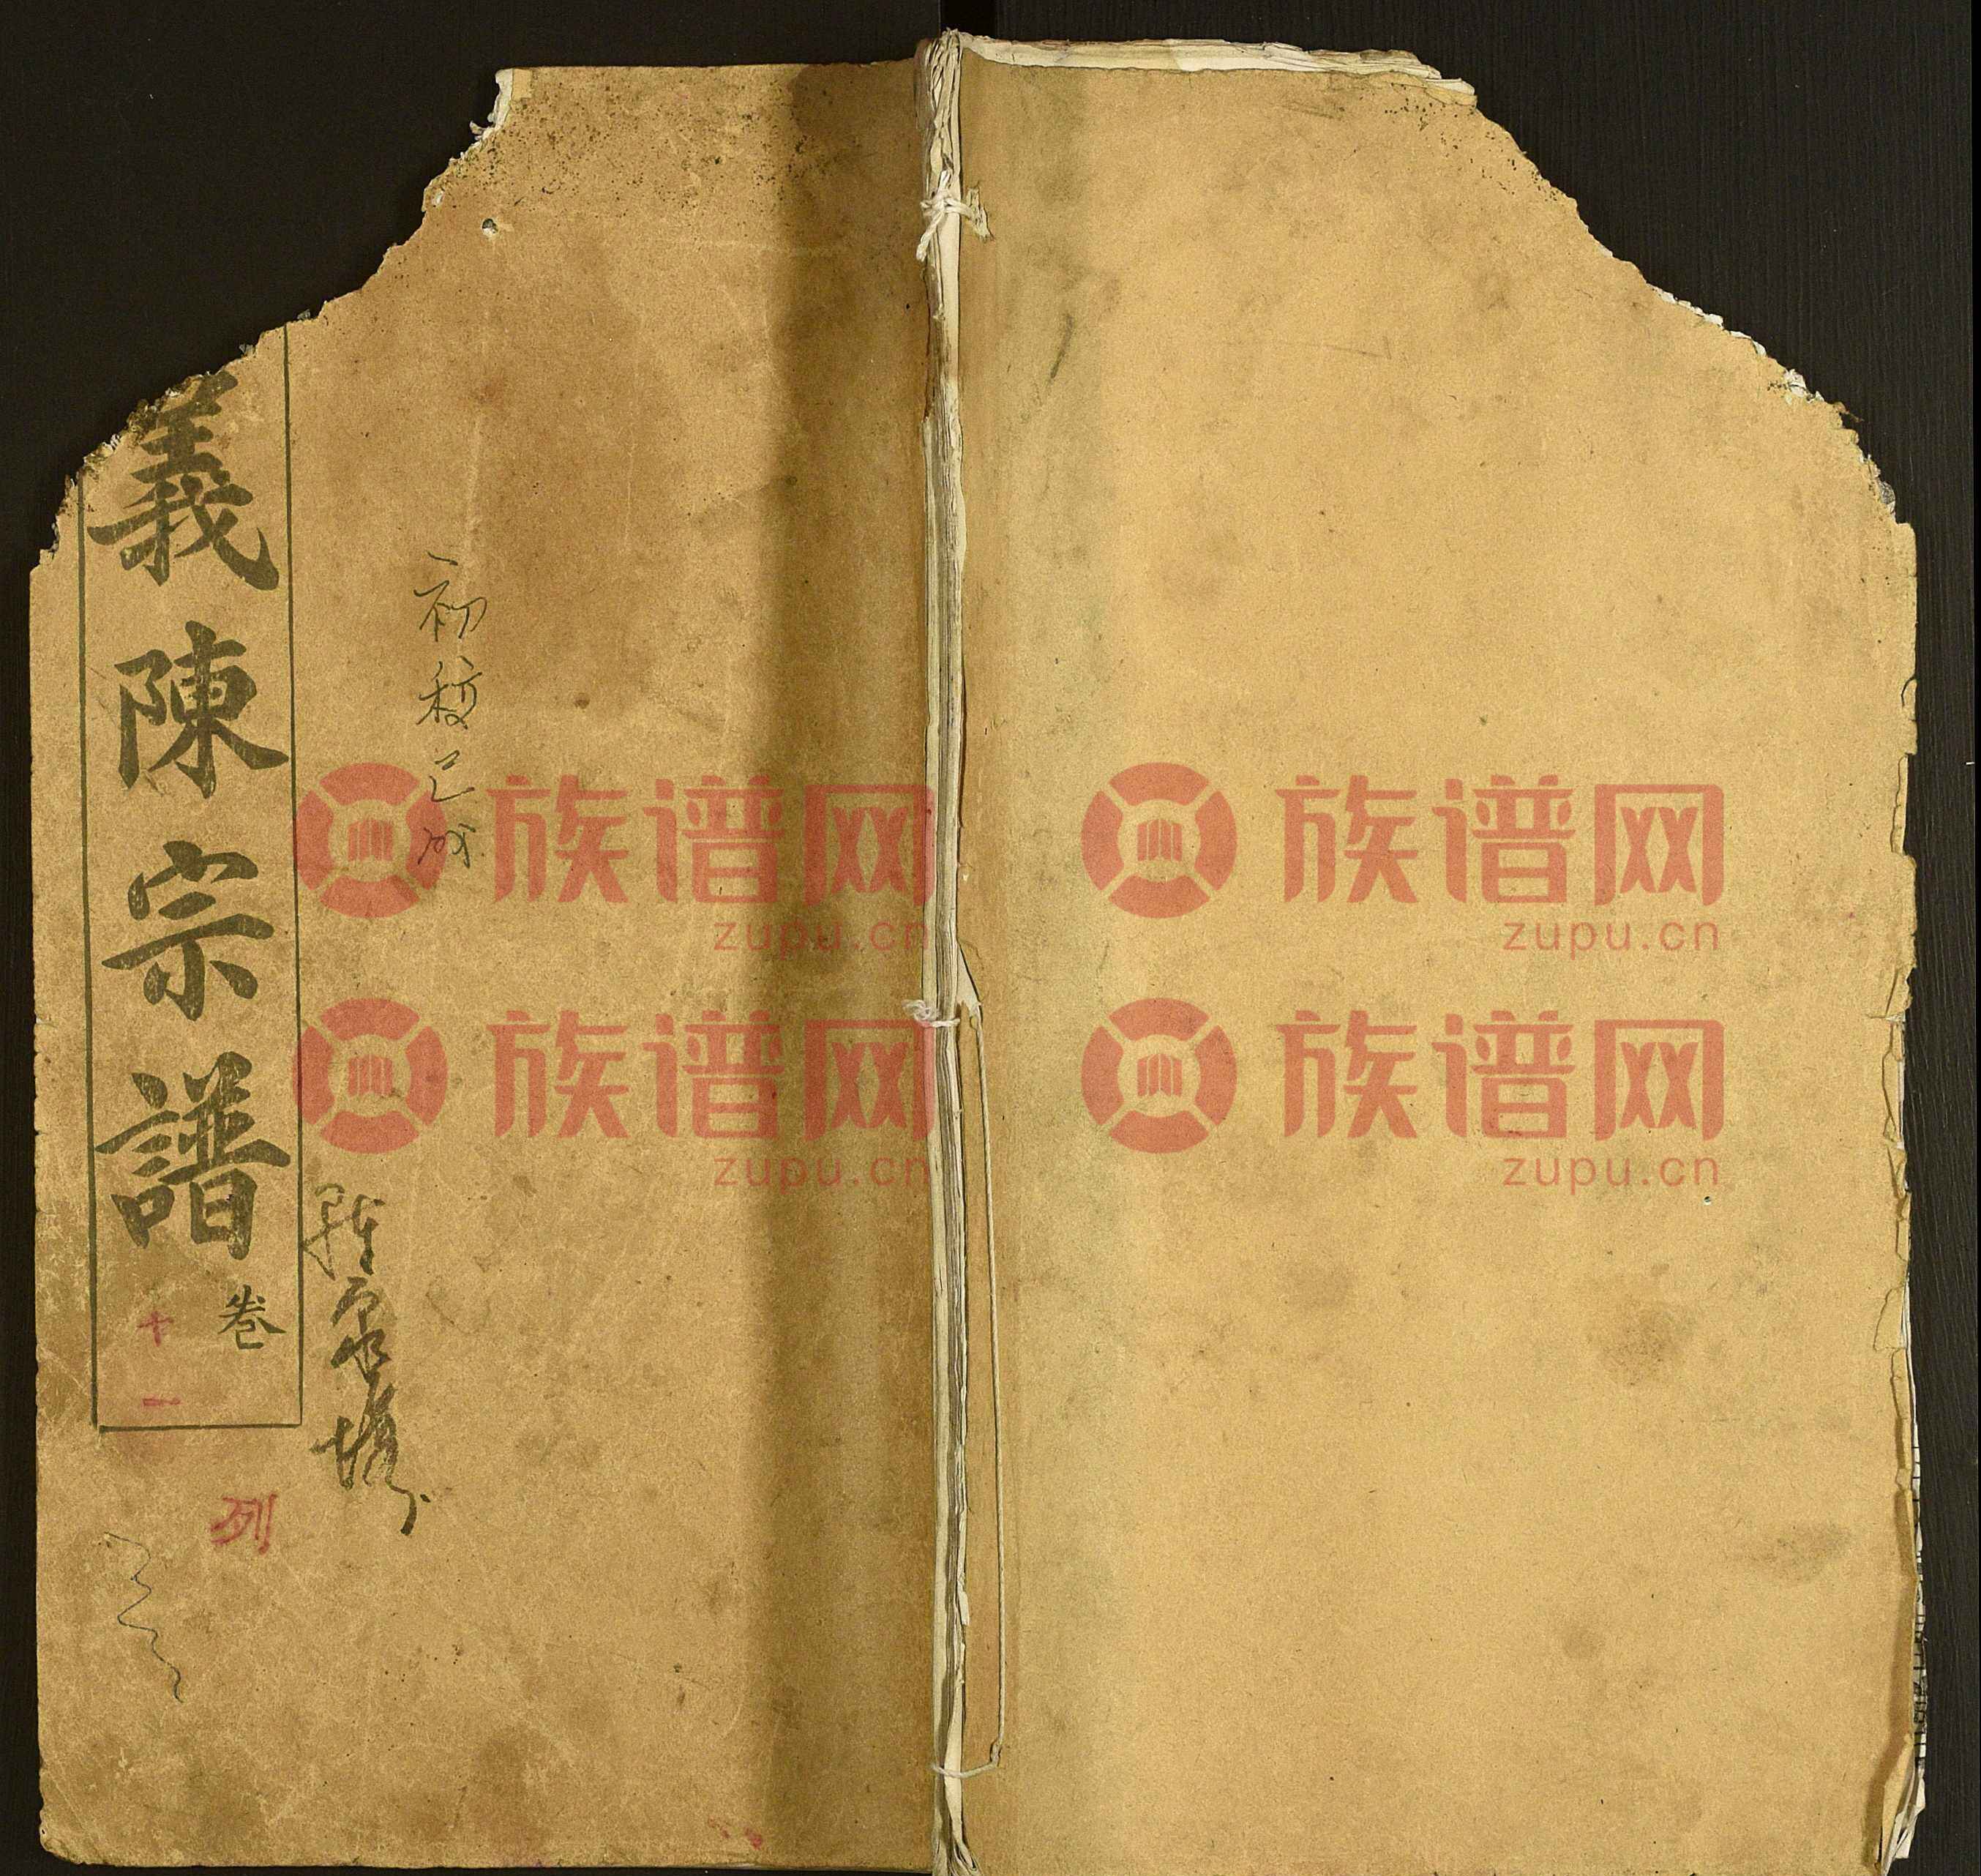 義陳宗譜
卷
十一
列
初校已成
族谱网
zupu.cn
族谱网
zupu.cn
族谱网
zupu.cn
族谱网
zupu.cn